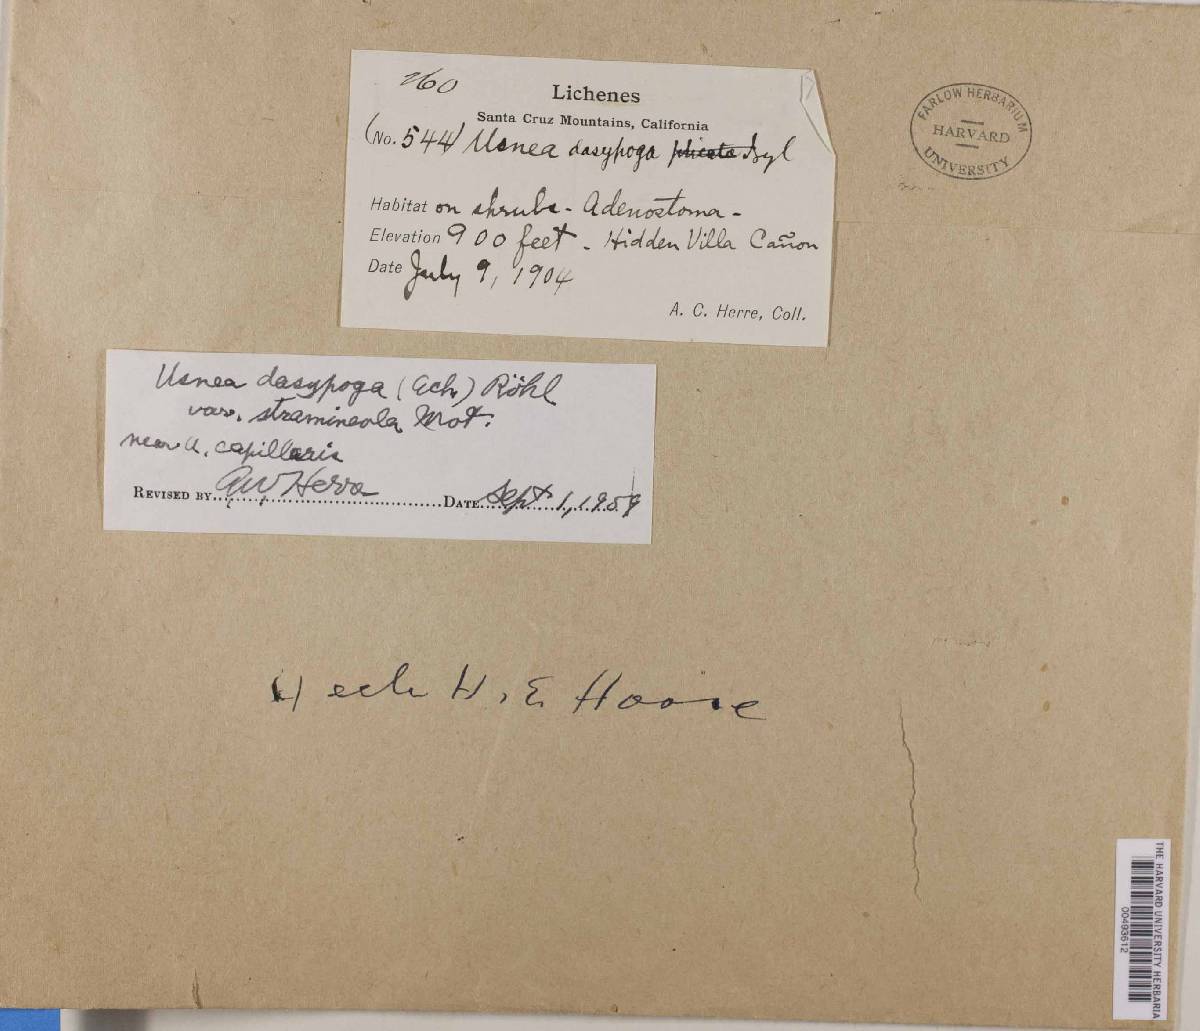 260
Lichenes
Santa Cruz Mountains, California
(No. 544) Usnea dasypoga plicata Nyl
Habitat on shrubs - Adenostoma -
Elevation 900 feet - Hidden Villa Cañon
Date July 9, 1904
A. C. Herre, Coll.
FARLOW HERBARIUM
HARVARD
UNIVERSITY
Usnea dasypoga (Ach) Röhl
var. stramineola Mot.
near U. capillaris
REVISED BY AW Herre DATE Sept 1, 1959
H. E.
THE HARVARD UNIVERSITY HERBARIA
00493612